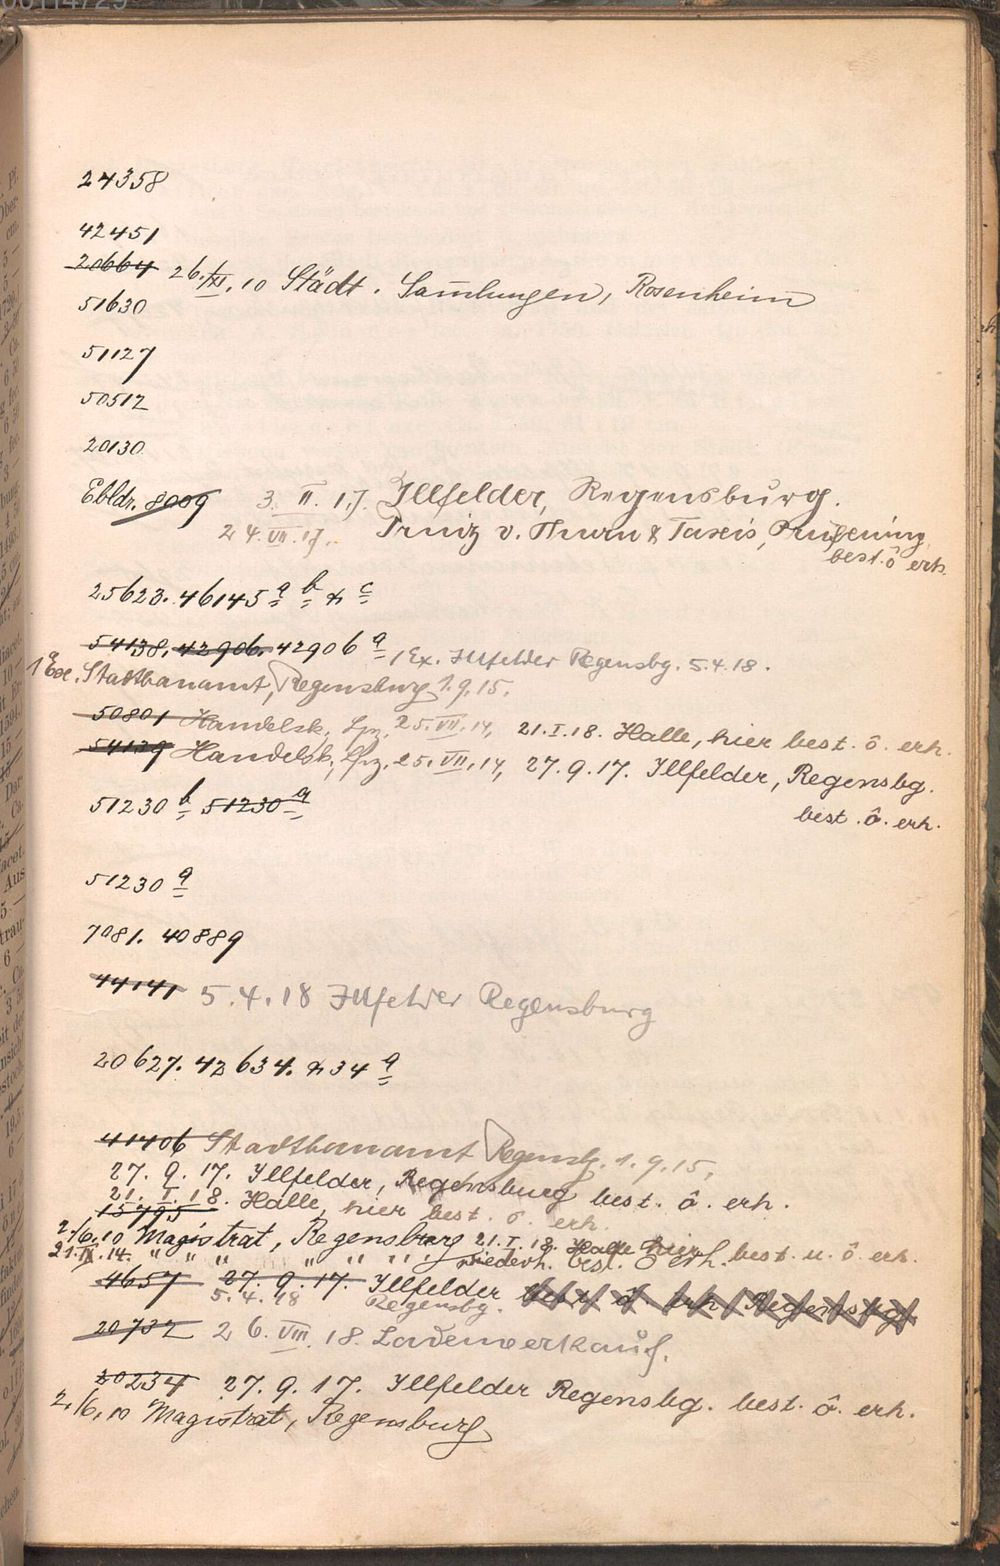 24358
42451
20664 26./XI.10 Städt. Samlungen, Rosenheim
51630
51127
50512
20130
Ebldr. 8009 3. II. 17. Illfelder, Regensburg.
24. VII. 17. v. Thurn & Taxis, Prüfening
best. ô erh.
25623. 46145 a b & c
54138, 42906. 42906 a 1 Ex. Illfelder Regensbg. 5.4.18.
Stadtbauamt, Regensburg 1.9.15.
50801 Handelsk. Lpz. 25. VII. 14, 21. I. 18. Halle, hier best. ô. erh.
54139 Handelsk, Lpz. 25. VII. 14, 27. 9. 17. Illfelder, Regensbg.
best. ô. erh.
51230 b 51230 a
51230 a
7081. 40889
44141 5.4.18 Illfelder Regensburg
20627. 42634. & 34 a
41406 Stadtbauamt Regensb. 1.9.15,
27. 9. 17. Illfelder, Regensburg best. ô. erh.
21. I. 18. Halle, hier best. ô. erh.
15795
2/6.10 Magistrat, Regensburg 21. I. 18. Halle hier best. u. ô erh.
21. IX. 14. " " " " " " " wiederh. best. ô erh.
4657 27. 9. 17. Illfelder best. ô. erh. Regensbg.
5. 4. 18 Regensbg.
20732 26. VIII. 18. Ladenverkauf.
20234 27. 9. 17. Illfelder Regensbg. best. ô. erh.
2./6.10 Magistrat, Regensburg